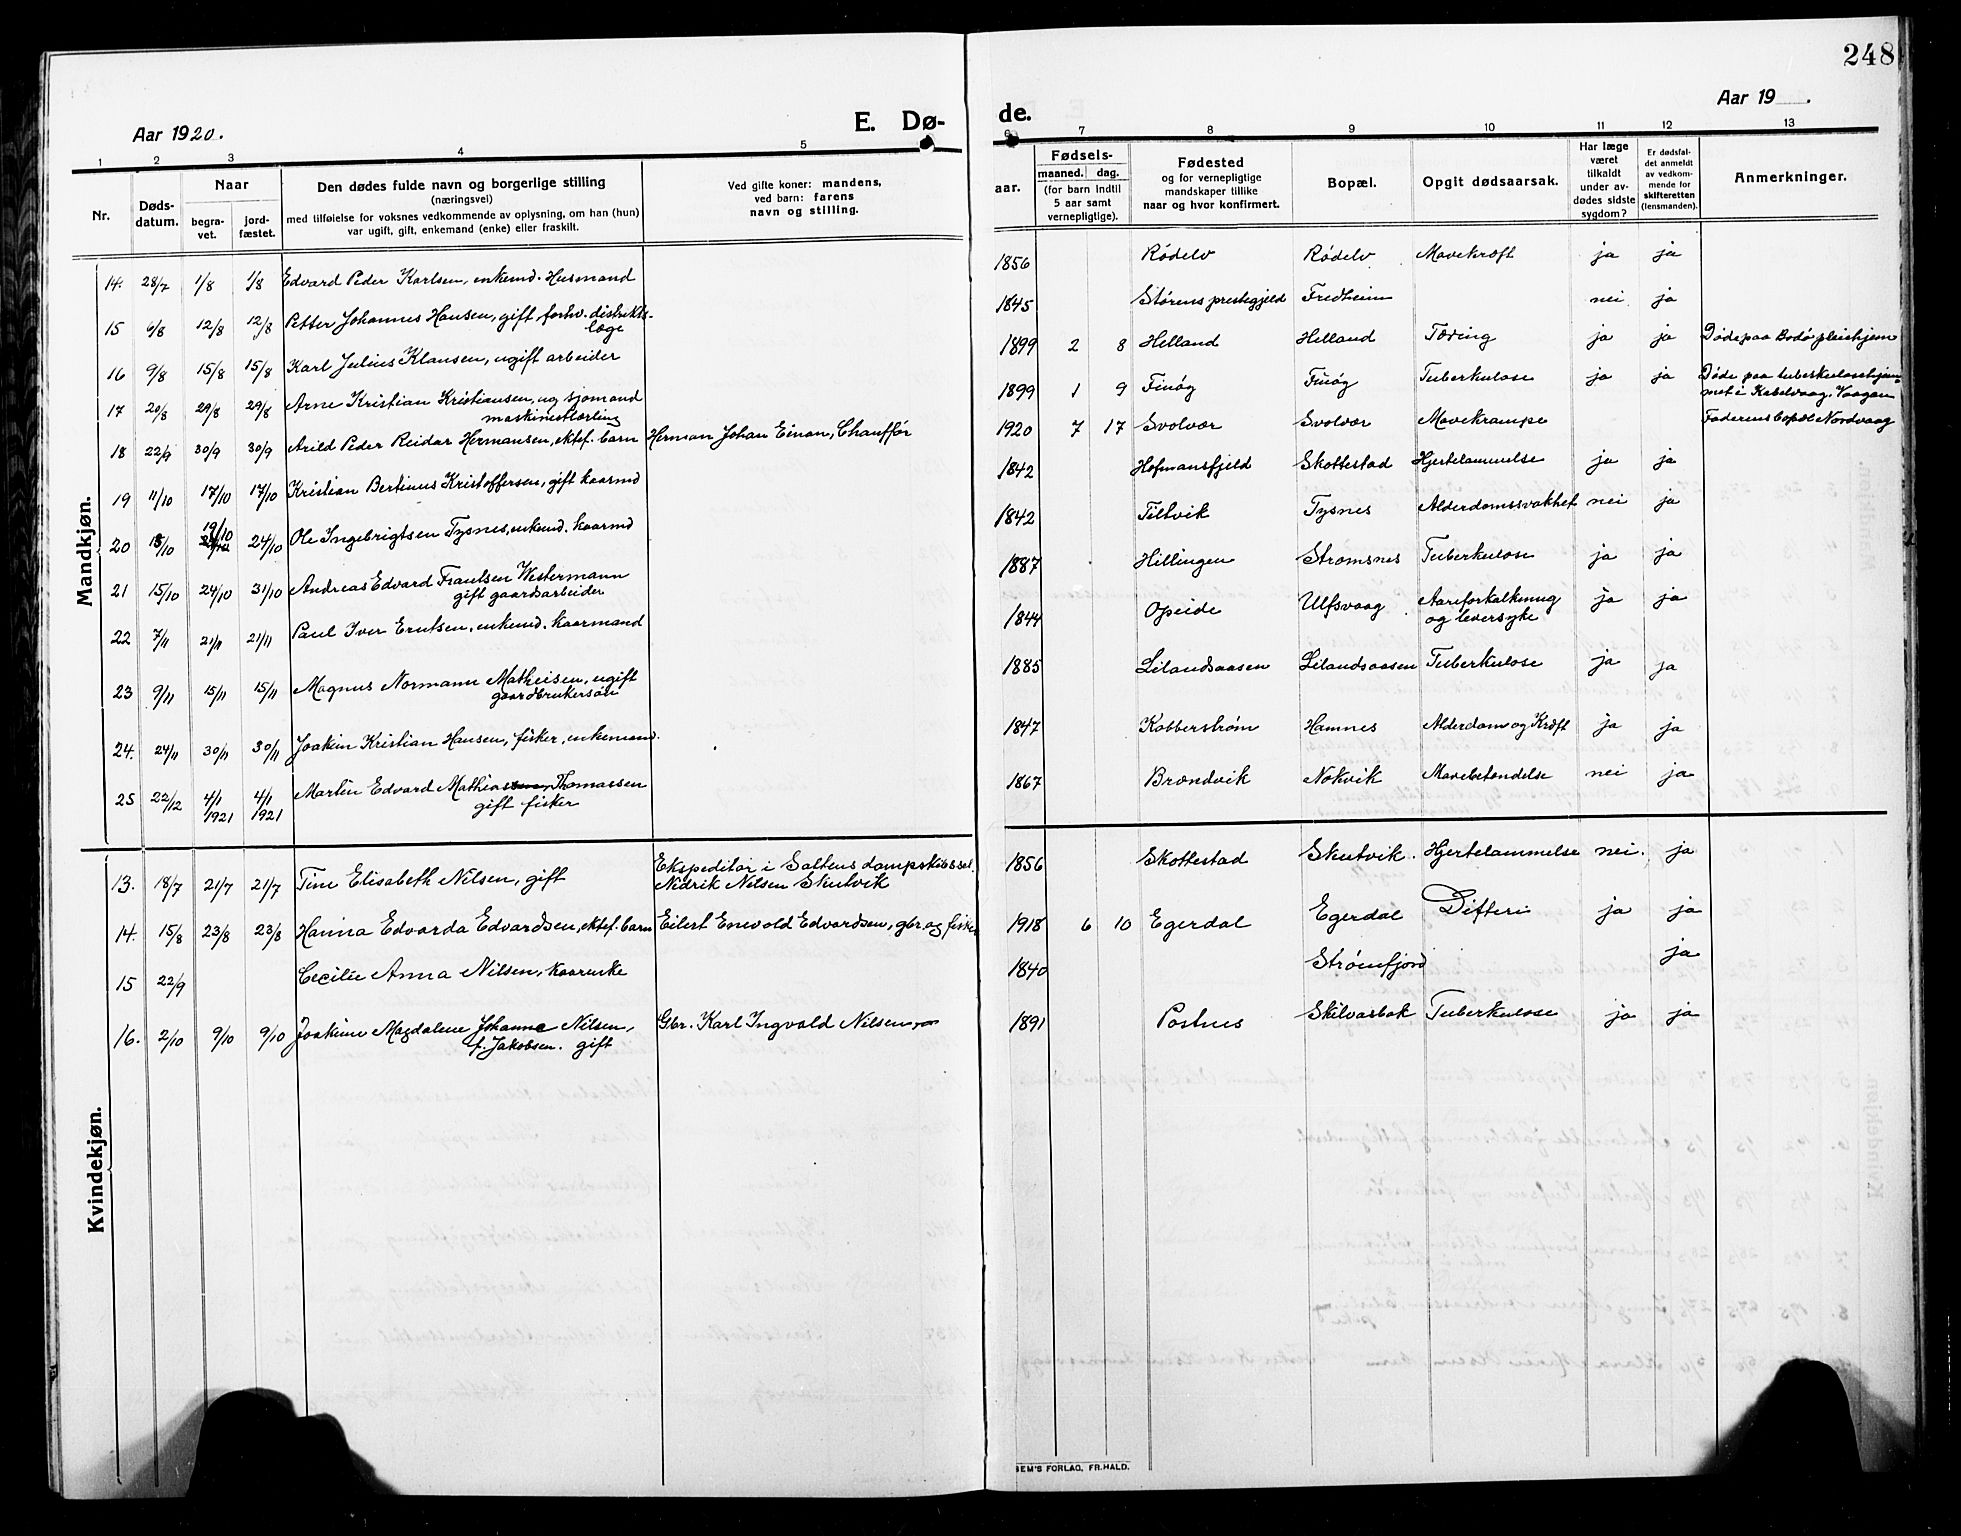 248
Aar 1920.
E. Dø-
de.
Aar 19 .
1 2 3 4 5 6 7 8 9 10 11 12 13
Nr.
Døds-
datum.
Naar
begra-
vet.
jord-
fæstet.
Den dødes fulde navn og borgerlige stilling
(næringsvei)
med tilføielse for voksnes vedkommende av oplysning, om han (hun)
var ugift, gift, enkemand (enke) eller fraskilt.
Ved gifte koner: mandens,
ved barn: farens
navn og stilling.
aar.
Fødsels-
maaned. dag.
(for barn indtil
5 aar samt
vernepligtige).
Fødested
og for vernepligtige
mandskaper tillike
naar og hvor konfirmert.
Bopæl.
Opgit dødsaarsak.
Har læge
været
tilkaldt
under av-
dødes sidste
sygdom?
Er dødsfal-
det anmeldt
av vedkom-
mende for
skifteretten
(lensmanden).
Anmerkninger.
Mandkjøn.
14. 28/7 1/8 1/8 Edvard Peder Karlsen, enkemd. Husmand 1856 Rødelv Rødelv Mavekræft ja ja
15 6/8 12/8 12/8 Petter Johannes Hansen, gift, forhv. distrikts-
læge 1845 Størens prestegjeld Fredheim nei ja
16 9/8 15/8 15/8 Karl Julius Klausen, ugift arbeider 1899 2 8 Helland Helland Tæring ja ja Døde paa Bodø pleiehjem
17 20/8 29/8 29/8 Arne Kristian Kristiansen, ug sjømand
maskinestlærling 1899 1 9 Finøg Finøg Tuberkulose ja ja Døde paa tuberkulosehjem-
met i Kabelvaag, Vaagan
18 22/9 30/9 30/9 Arild Peder Reidar Hermansen, ektef. barn Herman Johan Einan, Chauffør 1920 7 17 Svolvær Svolvær Mavekrampe Faderens bopæl Nordvaag
19 11/10 17/10 17/10 Kristian Bertinus Kristoffersen, gift kaarmd 1842 Hofmansfjeld Skottestad Hjertelammelse ja ja
20 18/10 19/10 24/10 Ole Ingebrigtsen Tysnes, enkemd. kaarmd 1842 Tiltvik Tysnes Alderdomssvakhet nei ja
21 15/10 24/10 31/10 Andreas Edvard Frantsen Westermann
gift gaardsarbeider 1887 Hillingen Strømsnes Tuberkulose ja ja
22 7/11 21/11 21/11 Paul Iver Erntsen, enkemd. kaarmand 1844 Opeide Ulfsvaag Aareforkalkning
og leversyke ja ja
23 9/11 15/11 15/11 Magnus Normann Matheisen, ugift
gaardbrukersøn 1885 Lilandsaasen Lilandsaasen Tuberkulose ja ja
24. 24/11 30/11 30/11 Joakim Kristian Hansen, fisker, enkemand. 1847 Kobberstrøm Hamnes Alderdom og Kræft ja ja
25 22/12 4/1 1921 4/1 1921 Martin Edvard Mathiassen, Thomassen
gift fisker 1867 Brændvik Nøkvik Mavebetændelse nei ja
Kvindekjøn.
13. 18/7 21/7 21/7 Tine Elisabeth Nilsen, gift Ekspeditør i Saltens dampskibssel.
Nidrik Nilsen Skutvik 1856 Skottestad Skutvik. Hjertelammelse nei. ja
14. 15/8 23/8 23/8 Hanna Edvarda Edvardsen, ektef. barn Eilert Enevold Edvardsen, gbr. og fisker 1918 6 10 Egerdal Egerdal Difteri ja ja
15 22/9 Cecilie Anna Nilsen, kaarenke 1840 Strømfjord ja
16. 2/10 9/10 9/10 Joakime Magdalene Johanna Nilsen,
f. Jakobsen. gift Gbr. Karl Ingvald Nilsen 1891 Postnes Skilvasbak Tuberkulose ja ja
SEM'S FORLAG, FR. HALD.